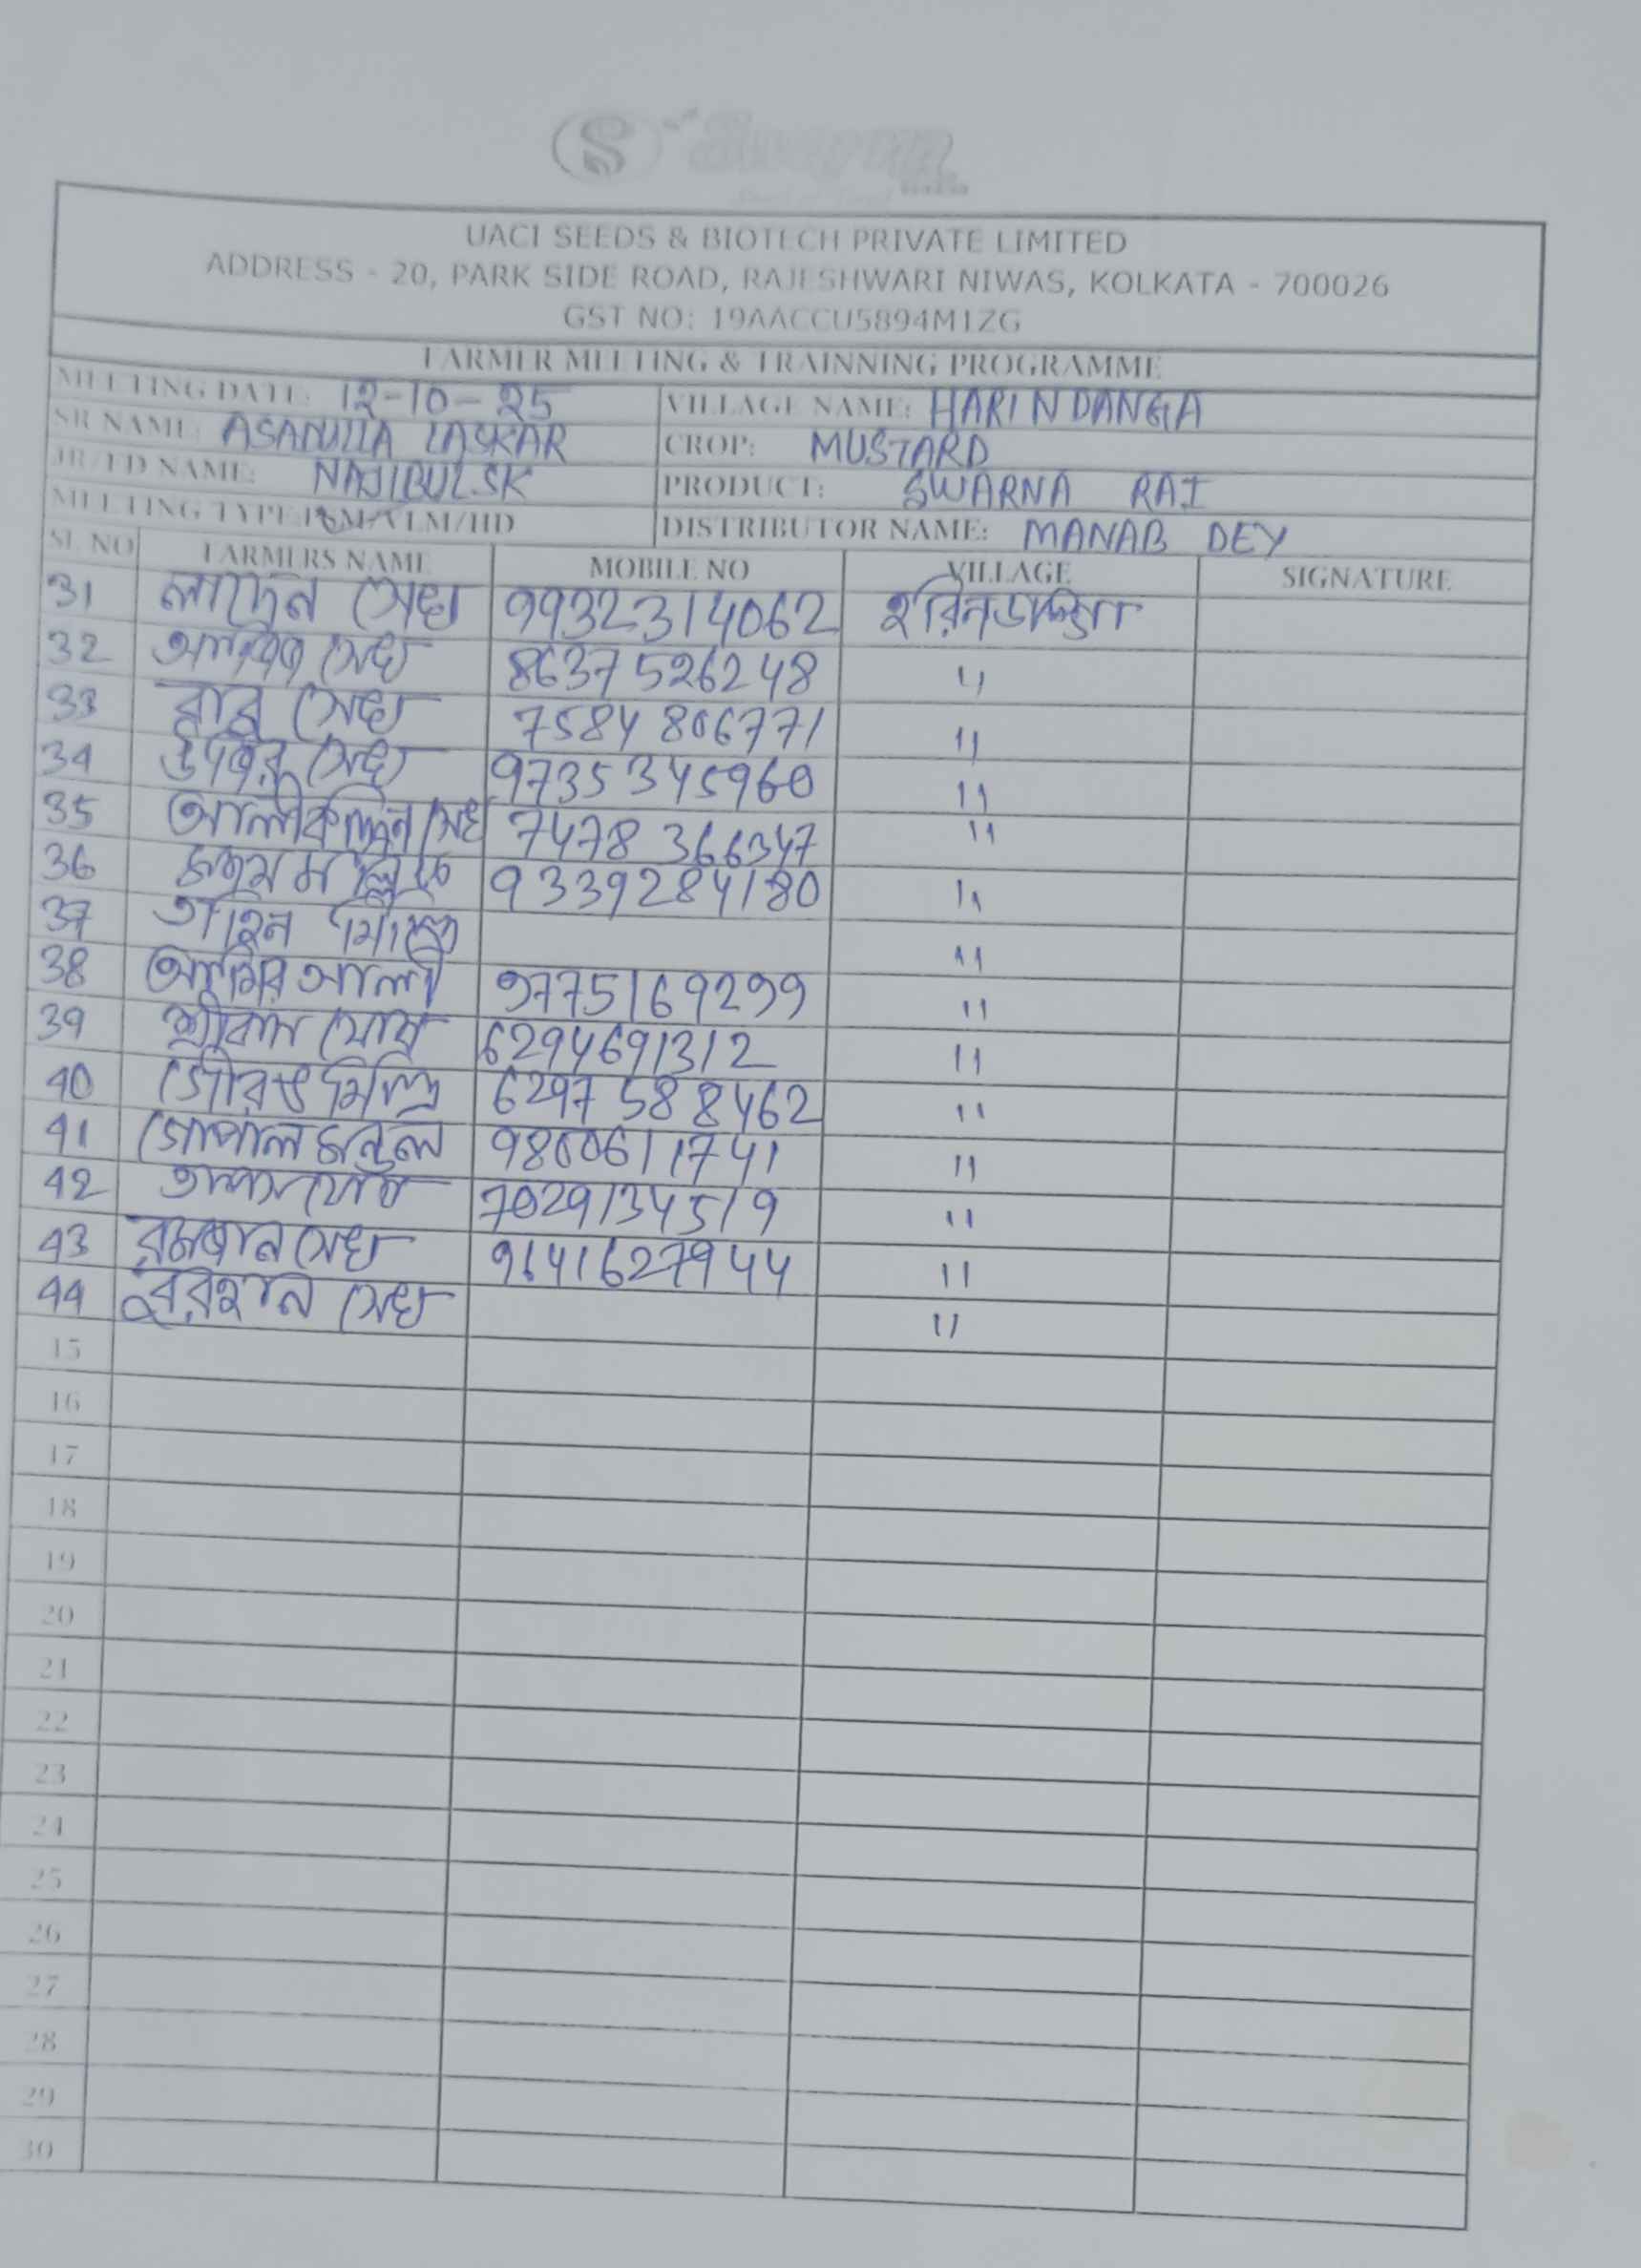 S Suvarna
UACI SEEDS & BIOTECH PRIVATE LIMITED
ADDRESS - 20, PARK SIDE ROAD, RAJESHWARI NIWAS, KOLKATA - 700026
GST NO: 19AACCU5894M1ZG
FARMER MEETING & TRAINNING PROGRAMME
MEETING DATE: 12-10-25 VILLAGE NAME: HARINDANGA
SR NAME: ASADULLA LASKAR CROP: MUSTARD
JR/FD NAME: NAJIBUL SK PRODUCT: SWARNA RAI
MEETING TYPE: /HD DISTRIBUTOR NAME: MANAB DEY
SL NO FARMERS NAME MOBILE NO VILLAGE SIGNATURE
31 লাদেন সেখ 9932314062 হরিনডাঙ্গা
32 সেখ 8637526248 "
33 বাবু সেখ 7584806771 "
34 সেখ 9735345960 "
35 সেখ 7478366347 "
36 মল্লিক 9339284180 "
37 "
38 আমির আলী 9775169299 "
39 ঘোষ 6294691312 "
40 6297588462 "
41 গোপাল মন্ডল 9860611741 "
42 তাপস ঘোষ 7029134519 "
43 রমজান সেখ 9641627944 "
44 বুরহান সেখ "
15
16
17
18
19
20
21
22
23
24
25
26
27
28
29
30